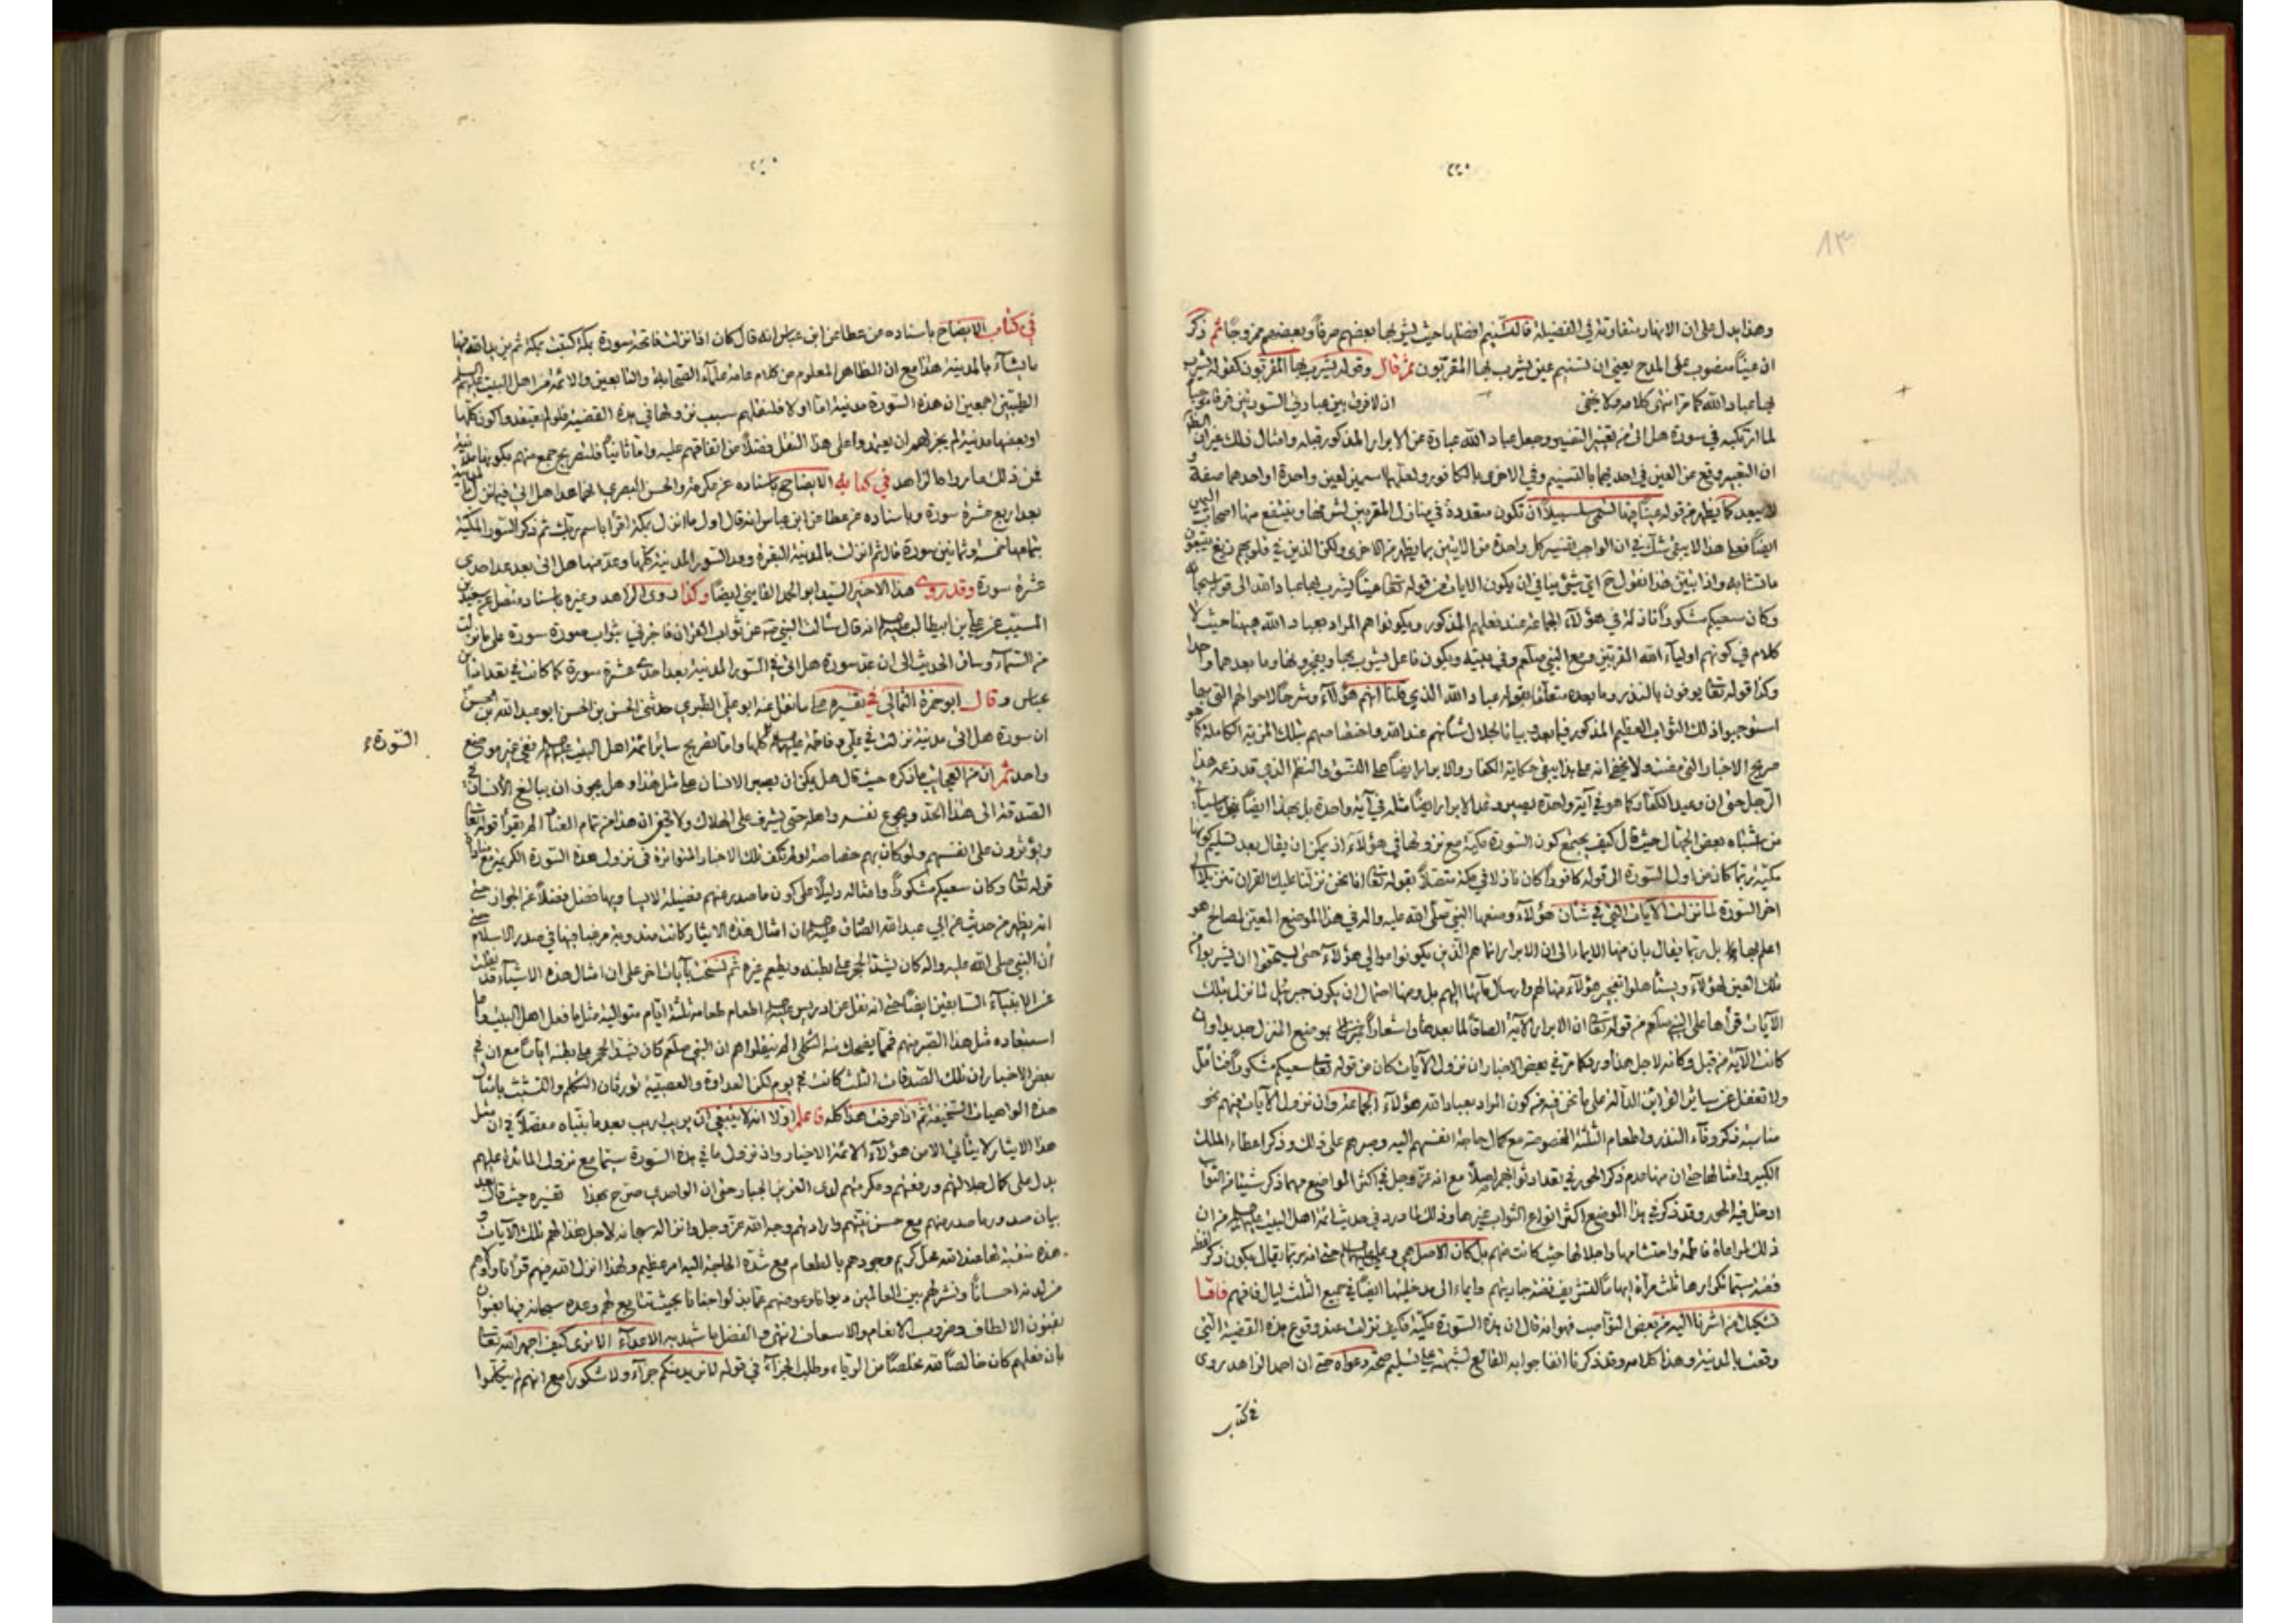 ٢٢٠
وهذا يدل على ان الانهار متفاوتة في الفضيلة فالتسنيم افضلها حيث يشربها بعضهم صرفا وبعضهم ممزوجا ثم ذكر
ان عينا منصوب على المدح يعني ان تسنيم عين يشرب بها المقربون ثم قال وقوله يشرب بها المقربون كقوله يشرب
بها عباد الله كما مر انتهى كلامه ولا يخفى اذ لا فرق بين عبارتي السورتين
لما ارتكبه في سورة هل اتى من تغيير التفسير وجعل عباد الله عبارة عن الابرار المذكور قبله وامثال ذلك غير ان
ان التعبير وقع عن العين في احديهما بالتسنيم وفي الاخرى بالكافور ولعلهما اسمين لعين واحدة او احدهما صفة
لا يبعد كما يظهر من قوله عينا فيها تسمى سلسبيلا ان تكون متعددة في منازل المقربين لشربها وينتفع منها اصحاب
ايضا فعلى هذا لا يبقى شك في ان الواجب تفسير كل واحدة من الايتين بما يظهر من الاخرى ولكن الذين في قلوبهم زيغ يتبعون
ما تشابه واذا تبين هذا نقول ح اي شئ ينافي ان يكون الايات من قوله تعا عينا يشرب بها عباد الله الى قوله
وكان سعيكم مشكورا نازلة في هؤلاء الجماعة عند فعلهم المذكور ويكونوا هم المراد بعباد الله هيهنا حيث لا
كلام في كونهم اولياء الله المقربين ومع النبي صلعم وفي معيته ويكون فاعل يشرب بها ويفجرونها وما بعدهما واحدا
وكذا قوله تعا يوفون بالنذر وما بعده متعلقا بقوله عباد الله الذي قلنا انهم هؤلاء وشرحا لاحوالهم التي بها
استوجبوا ذلك الثواب العظيم المذكور فيما بعد وبيانا لجلال شانهم عند الله واختصاصهم بتلك المزية الكاملة كما هو
صريح الاخبار التي مضت ولا يخفى انه على هذا يبقى حكاية الكفار والابرار ايضا على النسق والنظم الذي قد زعمه هذا
الرجل حتى ان وعيد الكفار كما هو في آية واحدة يصير وعد الابرار ايضا مثله في آية واحدة بل بهذا ايضا
من اشتباه بعض الجهال حيث قال كيف يجتمع كون السورة مكية مع نزولها في هؤلاء اذ يمكن ان يقال بعد تسليم كونها
مكية ربما كان من اول السورة الى قوله كافورا كان نازلا في مكة متصلا بقوله تعا انا نحن نزلنا عليك القران تنزيلا الى
اخر السورة لما نزلت الآيات التي في شان هؤلاء وضعها النبي صلى الله عليه واله في هذا الموضع المعين لمصالح هو
اعلم بها بل ربما يقال بان منها الايماء الى ان الابرار انما هم الذين يكونوا موالي هؤلاء حتى يستحقوا ان يشربوا من
تلك العين لهؤلاء ويستأهلوا تفجير هؤلاء منها لهم وارسال مائها اليهم بل ومنها احتمال ان يكون جبرئيل لما نزل بتلك
الآيات قرأها على النبي صلعم من قوله تعا ان الابرار الآية الصاقا لما بعدها واشعارا بموضع المنزل جديدا وان
كانت الآية من قبل وكانه لاجل هذا ورد كما مر في بعض الاخبار ان نزول الآيات كان من قوله تعا سعيكم مشكورا فتأمل
ولا تغفل عن سائر القرائن الدالة على ما نحن فيه من كون المراد بعباد الله هؤلاء الجماعة وان نزول الآيات فيهم نحو
مناسبة ذكر وفاء النذر واطعام الثلثة المخصوصة مع كمال حاجة انفسهم اليه وصبرهم على ذلك وذكر اعطاء الملك
الكبير وامثالها حتى ان منها عدم ذكر الحور في تعداد ثوابهم اصلا مع انه عز وجل في اكثر المواضع مهما ذكر شيئا من الثواب
ادخل فيه الحور وقد ذكر في هذا الموضع اكثر انواع الثواب غيرها وذلك لما ورد في حديث ائمة اهل البيت من ان
ذلك لمراعاة فاطمة واحتشامها واجلالها حيث كانت منهم بل كان الاصل هي وعلي حتى انه ربما يقال بكون ذكر لفظ
فضة سيما تكرارها ثلث مرات ايهاما لتشريف فضة جاريتهم وايماء الى مدخليتها ايضا في جميع الثلث ليال فافهم فاما
تشكيك من اشرنا اليه من بعض النواصب فهو انه قال ان هذه السورة مكية فكيف نزلت عند وقوع هذه القضية التي
وقعت بالمدينة وهذا كلامه وقد ذكرنا انفا جوابه القالع لشبهته على تسليم صحة دعواه حتى ان احمد الزاهد روى
في كتاب
في كتاب الايضاح باسناده عن عطا عن ابن عباس انه قال كان اذا نزلت فاتحة سورة بمكة كتبت بمكة ثم يزيد الله فيها
ما يشاء بالمدينة هذا مع ان الظاهر المعلوم من كلام عامة علماء الصحابة والتابعين والائمة من اهل البيت عليهم السلم
الطيبين اجمعين ان هذه السورة مدنية اما اولا فلنقلهم سبب نزولها في هذه القضية فلو لم يعتقدوا كون كلها
او بعضها مدنية لم يجز لهم ان يعتمدوا على هذا النقل فضلا من اتفاقهم عليه واما ثانيا فلتصريح جمع منهم بكونها مدنية
فمن ذلك ما رواه الزاهد في كتابه الايضاح باسناده عن عكرمة والحسن البصري انهما عدا هل اتى فيما نزل بالمدينة
بعد اربع عشرة سورة وباسناده عن عطا عن ابن عباس انه قال اول ما انزل بمكة اقرأ باسم ربك ثم ذكر السور المكية
بتمامها خمسة وثمانين سورة قال ثم انزلت بالمدينة البقرة وعد السور المدنية كلها وعد منها هل اتى بعد عد احدى
عشرة سورة وقد روى هذا الاخير السيد ابو الحمد القايني ايضا وكذا روى الزاهد وغيره باسناد متصل عن سعيد بن
المسيب عن علي بن ابيطالب انه قال سألت النبي ص عن ثواب القران فاخبرني بثواب سورة سورة على ما نزلت
من السماء وساق الحديث الى ان عد سورة هل اتى في السور المدنية بعد احدى عشرة سورة كما كانت في تعداد ابن
عباس وقال ابو حمزة الثمالي في تفسيره على ما نقل عنه ابو علي الطبرسي حدثني الحسن بن الحسن ابو عبد الله بن
السورة
ان سورة هل اتى مدنية نزلت في علي وفاطمة كلها واما تصريح سائر ائمة اهل البيت ففي غير موضع
واحد ثم ان من العجائب ما ذكره حيث قال هل يمكن ان يصير الانسان على مثل هذا وهل يجوز ان يبالغ الانسان في
الصدقة الى هذا الحد ويجوع نفسه واهله حتى يشرف على الهلاك ولا تخفى ان هذا من تمام العناد الم يقرأ قوله تعا
ويؤثرون على انفسهم ولو كان بهم خصاصة اولم تكف تلك الاخبار المتواترة في نزول هذه السورة الكريمة مع
قوله تعا وكان سعيكم مشكورا وامثاله دليلا على كون ما صدر عنهم فضيلة لا يساويها فضل فضلا عن الجواز حتى
انه يظهر من حديث عن ابي عبد الله الصادق ان امثال هذه الايثار كانت مندوبة مرغبا فيها في صدر الاسلام حتى
ان النبي صلى الله عليه واله كان يشد الحجر على بطنه ويطعم غيره ثم نسخت بآيات اخر على ان امثال هذه الاشياء قد نقلت
عن الانبياء السابقين ايضا حتى انه نقل عن ادريس اطعام طعامه ثلثة ايام متوالية مثل ما فعل اهل البيت واما
استبعاده مثل هذا الصبر منهم فمما يضحك منه الثكلى الم ينقلوا هم ان النبي صلعم كان يشد الحجر على بطنه اياما مع ان في
بعض الاخبار ان تلك الصدقات الثلث كانت في يوم لكن العداوة والعصبية تورثان التكلم والتشبث بامثال
هذه الواهيات السخيفة ثم اذا عرفت هذا كله فاعلم اولا انه لا ينبغي ان يريب ريب بعد ما بيناه مفصلا في ان مثل
هذا الايثار لا يتأتى الا من هؤلاء الائمة الاخيار واذ نزول ما في هذه السورة سيما مع نزول المائدة عليهم
يدل على كمال جلالتهم ورفعتهم ومكرمتهم لدى العزيز الجبار حتى ان الواحدي صرح بهذا تفسيره حيث قال بعد
بيان صدور ما صدر منهم مع حسن نيتهم وارادتهم وجه الله عز وجل وانزاله سبحانه لاجل هذا لهم تلك الآيات و
هذه منقبة لها عند الله محل كريم وجودهم بالطعام مع شدة الحاجة اليه امر عظيم ولهذا انزل الله فيهم قرآنا واولاهم
من لدنه احسانا ونشر لهم بين العالمين ديوانا وعوضهم عما بذلوا جنانا بحيث تتابع لهم وعده سبحانه فيها بفنون
بفنون الالطاف وضروب الانعام والاسعاف انتهى والفضل ما شهد به الاعداء الا ترى كيف اخبر الله تعا
بان فعلهم كان خالصا لله مخلصا من الرياء وطلب الجزاء في قوله لا نريد منكم جزاء ولا شكورا مع انهم لم يتكلموا